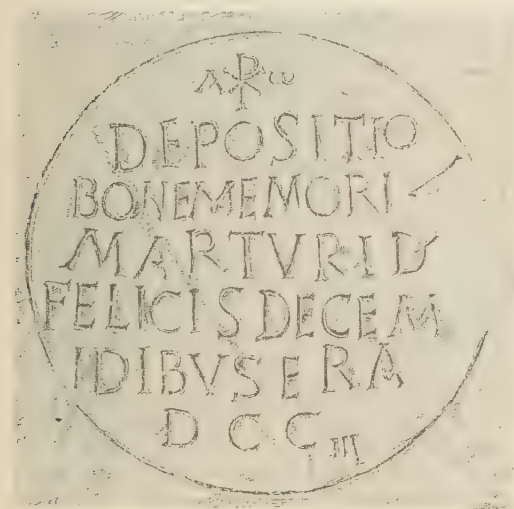 Α ☧ ω
DEPOSITIO
BONEMEMORI
MARTVRID
FELICISDECEM
IDIBVSERA
DCCIII